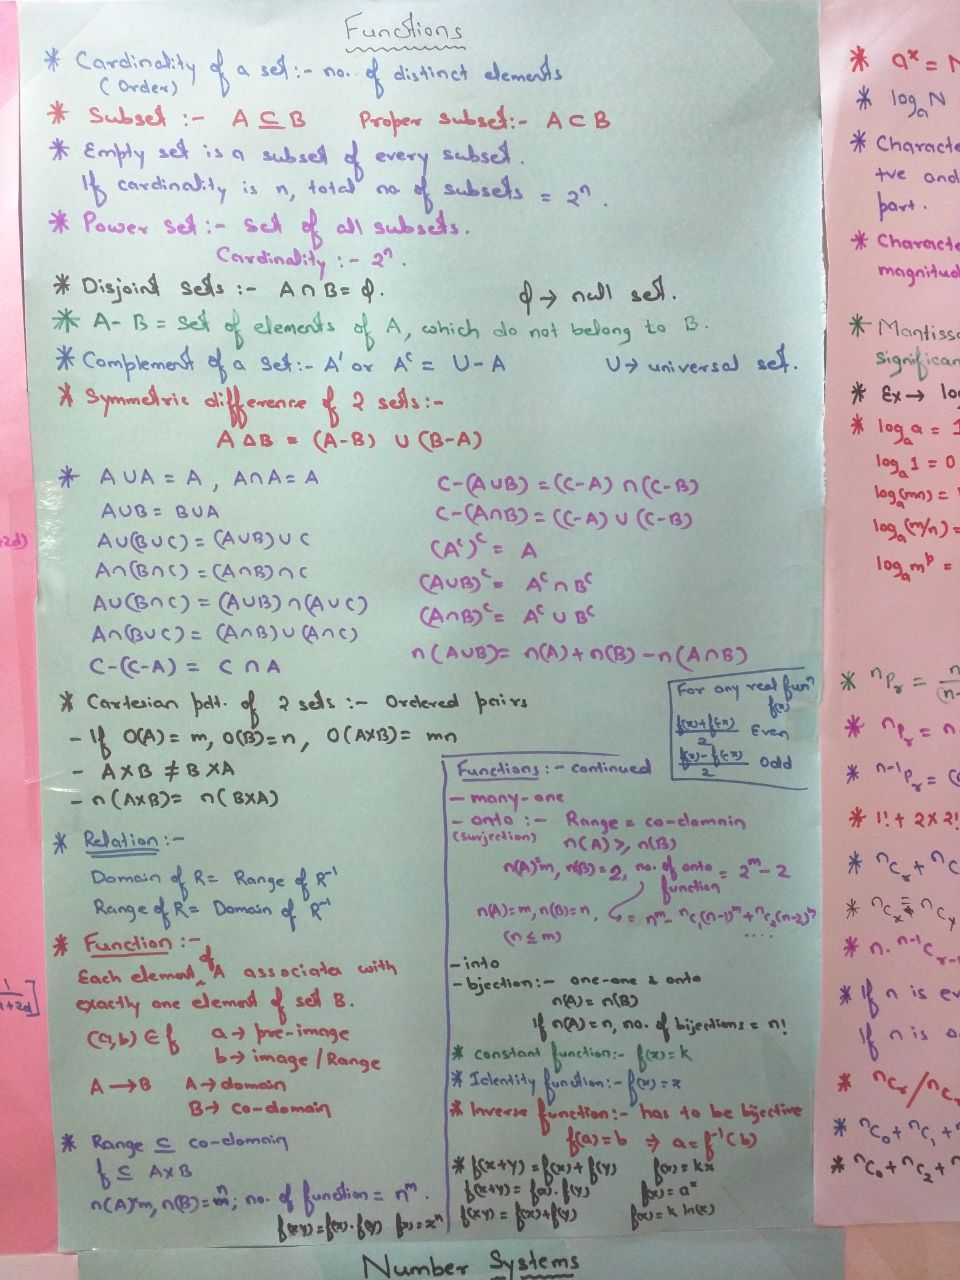 Functions
* Cardinality of a set :- no. of distinct elements
(Order)
* Subset :- A ⊆ B Proper subset :- A ⊂ B
* Empty set is a subset of every subset.
If cardinality is n, total no of subsets = 2ⁿ.
* Power set :- set of all subsets.
Cardinality :- 2ⁿ.
* Disjoint sets :- A ∩ B = ϕ. ϕ → null set.
* A - B = set of elements of A, which do not belong to B.
* Complement of a set :- A' or Aᶜ = U - A U → universal set.
* Symmetric difference of 2 sets :-
A Δ B = (A-B) ∪ (B-A)
* A∪A = A, A∩A = A
A∪B = B∪A
A∪(B∪C) = (A∪B)∪C
A∩(B∩C) = (A∩B)∩C
A∪(B∩C) = (A∪B)∩(A∪C)
A∩(B∪C) = (A∩B)∪(A∩C)
C-(C-A) = C∩A
C-(A∪B) = (C-A)∩(C-B)
C-(A∩B) = (C-A)∪(C-B)
(Aᶜ)ᶜ = A
(A∪B)ᶜ = Aᶜ∩Bᶜ
(A∩B)ᶜ = Aᶜ∪Bᶜ
n(A∪B) = n(A)+n(B)-n(A∩B)
* Cartesian pdt. of 2 sets :- Ordered pairs
- If O(A) = m, O(B) = n, O(A×B) = mn
- A×B ≠ B×A
- n(A×B) = n(B×A)
For any real funⁿ
f(x)
(f(x)+f(-x))/2 Even
(f(x)-f(-x))/2 Odd
* Relation :-
Domain of R = Range of R⁻¹
Range of R = Domain of R⁻¹
* Function :-
Each element of A associates with
exactly one element of set B.
(a,b) ∈ f a → pre-image
b → image / Range
A → B A → domain
B → co-domain
* Range ⊆ co-domain
f ⊆ A×B
n(A)=m, n(B)=n; no. of function = nᵐ.
f(xy) = f(x)·f(y) f(x) = xⁿ
Functions :- continued
- many-one
- onto :- Range = co-domain
(surjection) n(A) ≥ n(B)
n(A)=m, n(B)=2, no. of onto function = 2ᵐ-2
n(A)=m, n(B)=n, = nᵐ - ⁿC₁(n-1)ᵐ + ⁿC₂(n-2)ᵐ
(n≤m) ....
- into
- bjection :- one-one & onto
n(A) = n(B)
If n(A)=n, no. of bijections = n!
* constant function :- f(x) = k
* Identity function :- f(x) = x
* Inverse function :- has to be bijective
f(a) = b ⇒ a = f⁻¹(b)
* f(x+y) = f(x)+f(y) f(x) = kx
f(x+y) = f(x)·f(y) f(x) = aˣ
f(xy) = f(x)+f(y) f(x) = k ln(x)
Number Systems
* aˣ = N
* logₐN
* Characte
+ve and
part.
* Characte
magnitud
* Mantissa
significan
* Ex → log
* logₐa = 1
logₐ1 = 0
logₐ(mn) =
logₐ(m/n) =
logₐmᵇ =
* ⁿPᵣ =
* ⁿPᵣ = n
* ⁿ⁻¹Pᵣ =
* 1! + 2×2!
* ⁿCᵣ + ⁿC
* ⁿCₓ = ⁿCᵧ
* n. ⁿ⁻¹Cᵣ₋
* If n is ev
If n is o
* ⁿCᵣ/ⁿCᵣ
* ⁿC₀ + ⁿC₁ +
* ⁿC₀ + ⁿC₂ +